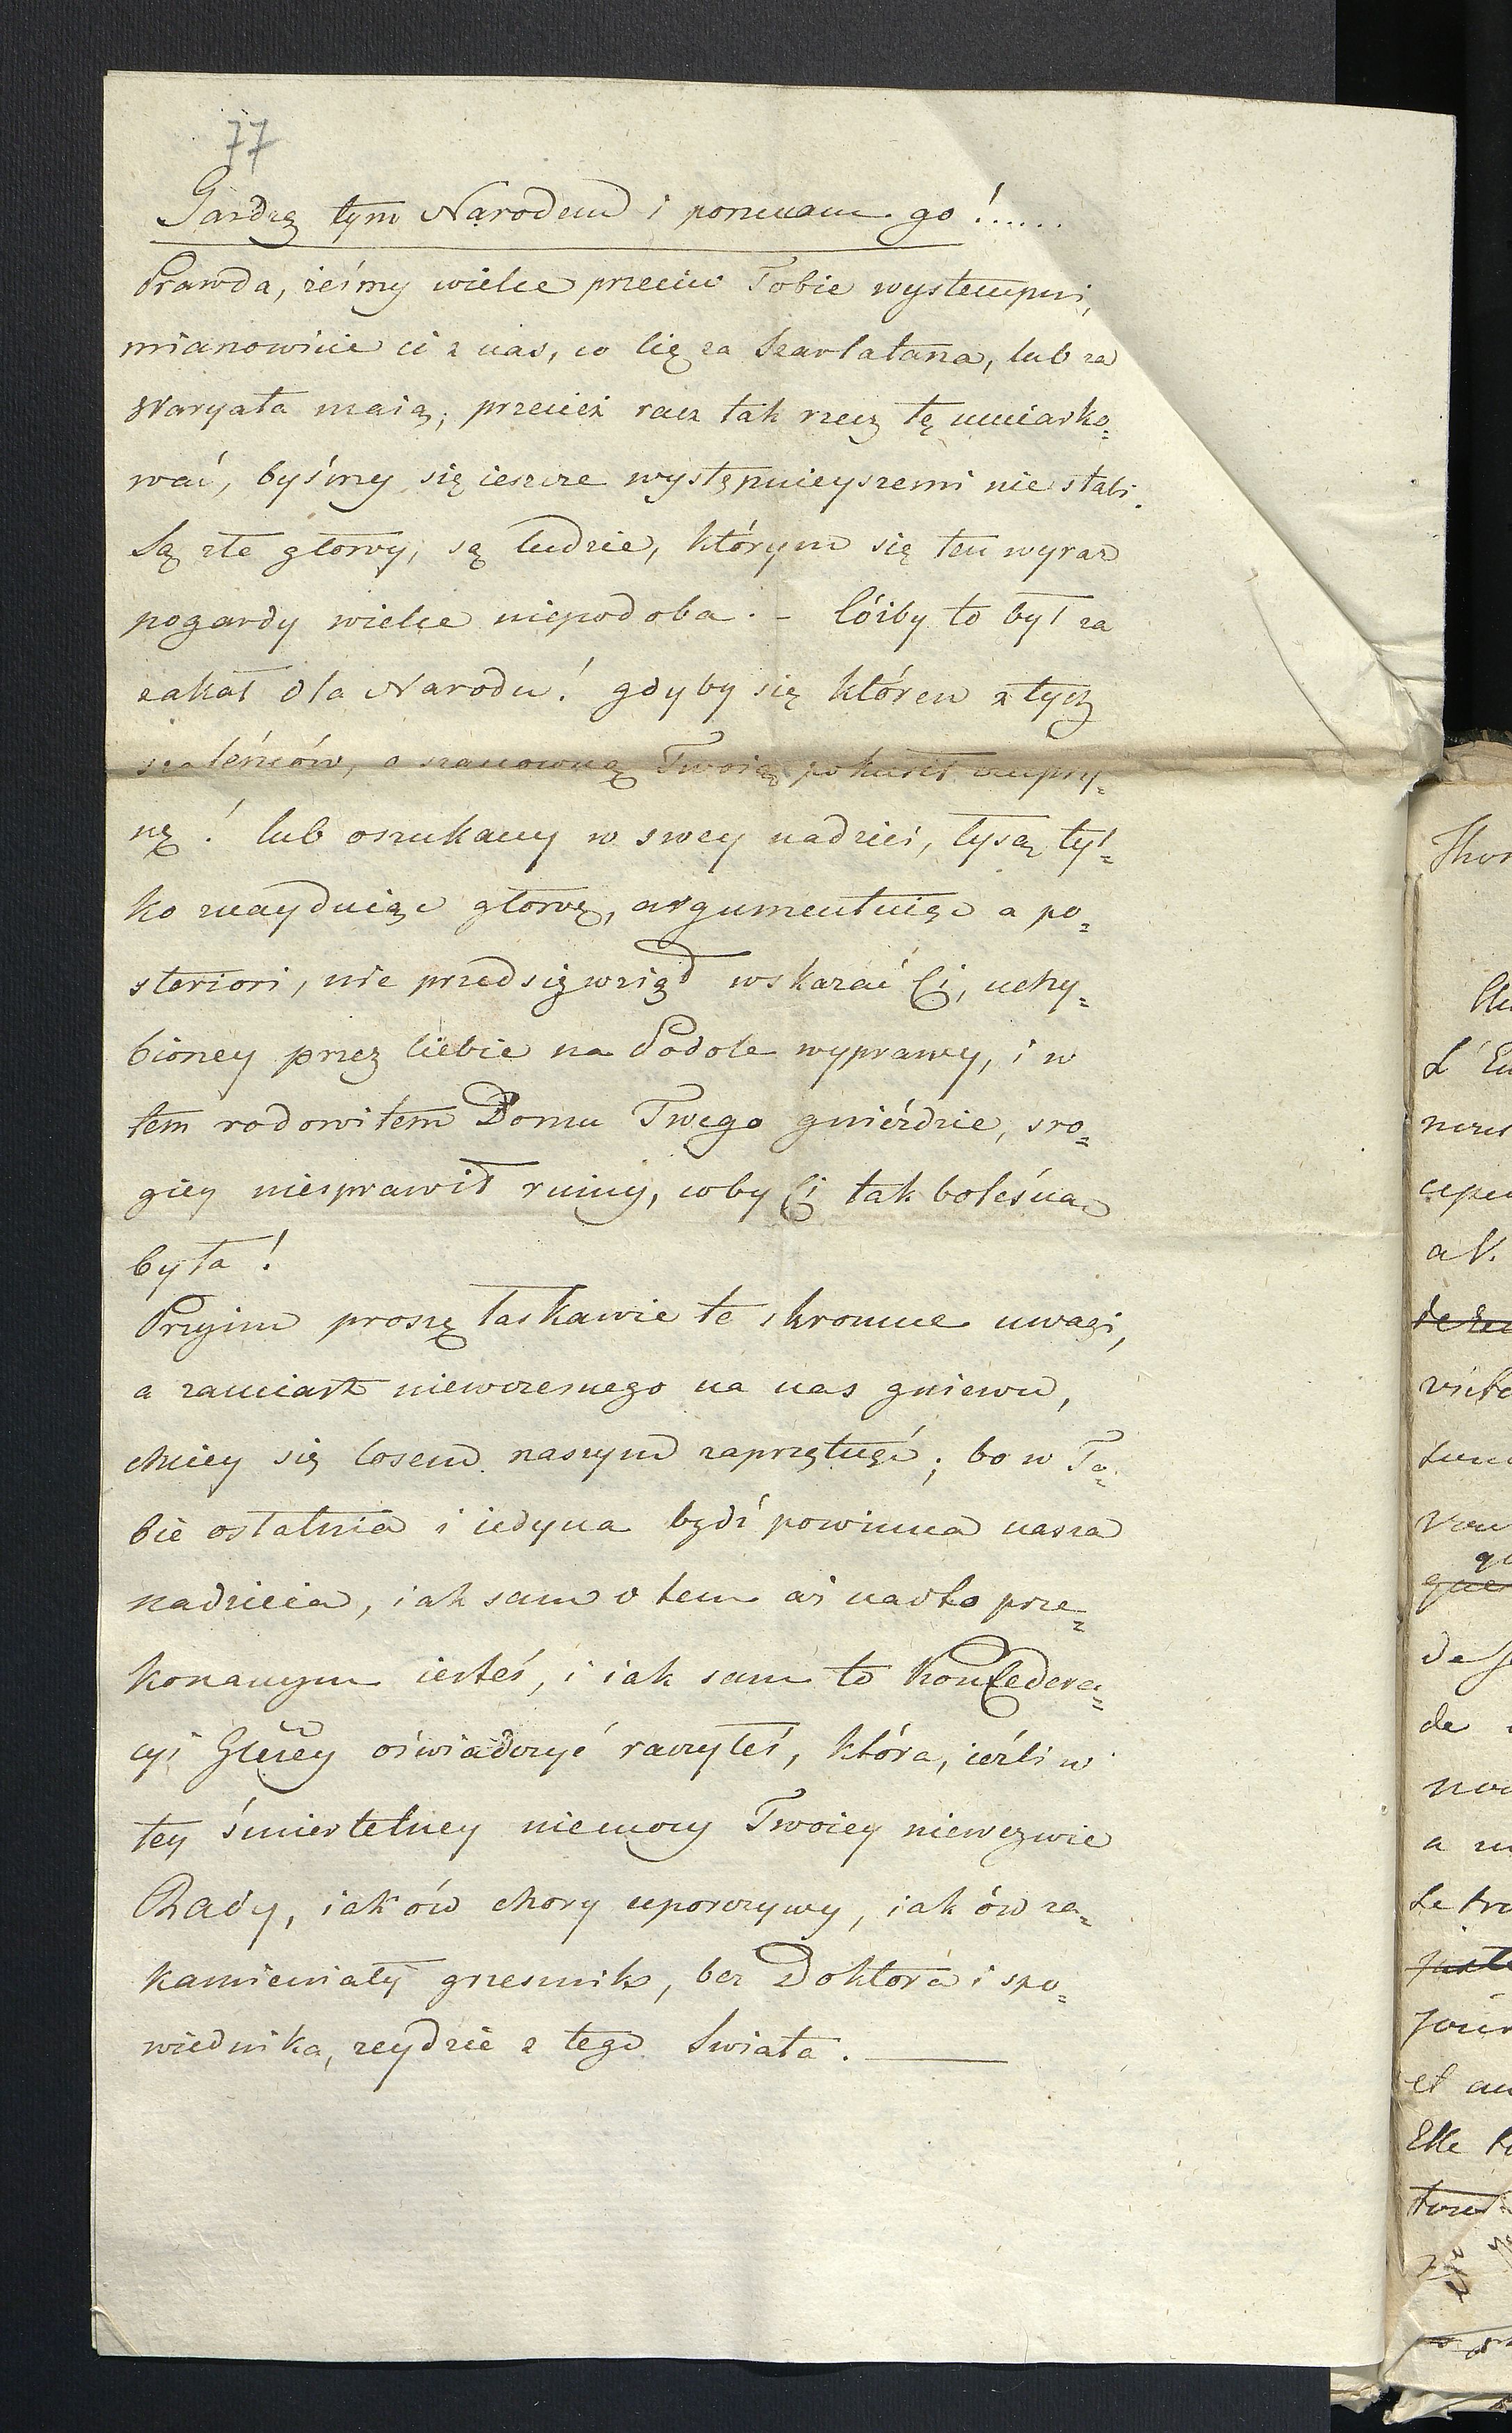 77
Gardzę tym Narodem i pomiatam go!.....
Prawda, żeśmy wielce przeciw Tobie wystempni,
mianowicie ci z nas, co Cię za Szarlatana, lub za
Waryata maią; przecież racz tak rzecz tę umiarko=
wać, byśmy się ieszcze występnieyszemi nie stali.
Są złe głowy, są ludzie, którym się ten wyraz
pogardy wielce niepodoba. - Cóżby to był za
zakał dla Narodu! gdyby się któren z tych
szaleńców, o szanowną Twoią pokusił czupry=
nę! lub oszukany w swey nadziei, łysą tyl=
ko znayduiąc głowę, argumentuiąc a po=
steriori, nie przedsięwziął wskazać Ci, uchy=
bioney przez Ciebie na Podole wyprawy, i w
tem rodowitem Domu Twego gnieździe, sro=
giey niesprawił ruiny, coby Ci tak boleśna
była!
Przyim proszę łaskawie te skromne uwagi,
a zamiast niewczesnego na nas gniewu,
chciey się losem naszym zaprzątnąć; bo w To=
bie ostatnia i iedyna bydź powinna nasza
nadzieia, iak sam o tem aż nadto prze=
konanym iesteś, i iak sam to Konfedera=
cyi Glney oświadczyć raczyłeś, która, ieżli w
tey śmiertelney niemocy Twoiey niewezwie
Rady, iak ów chory uporczywy, iak ów za=
kamieniały grzesznik, bez Doktora i spo=
wiednika, zeydzie z tego Swiata. —